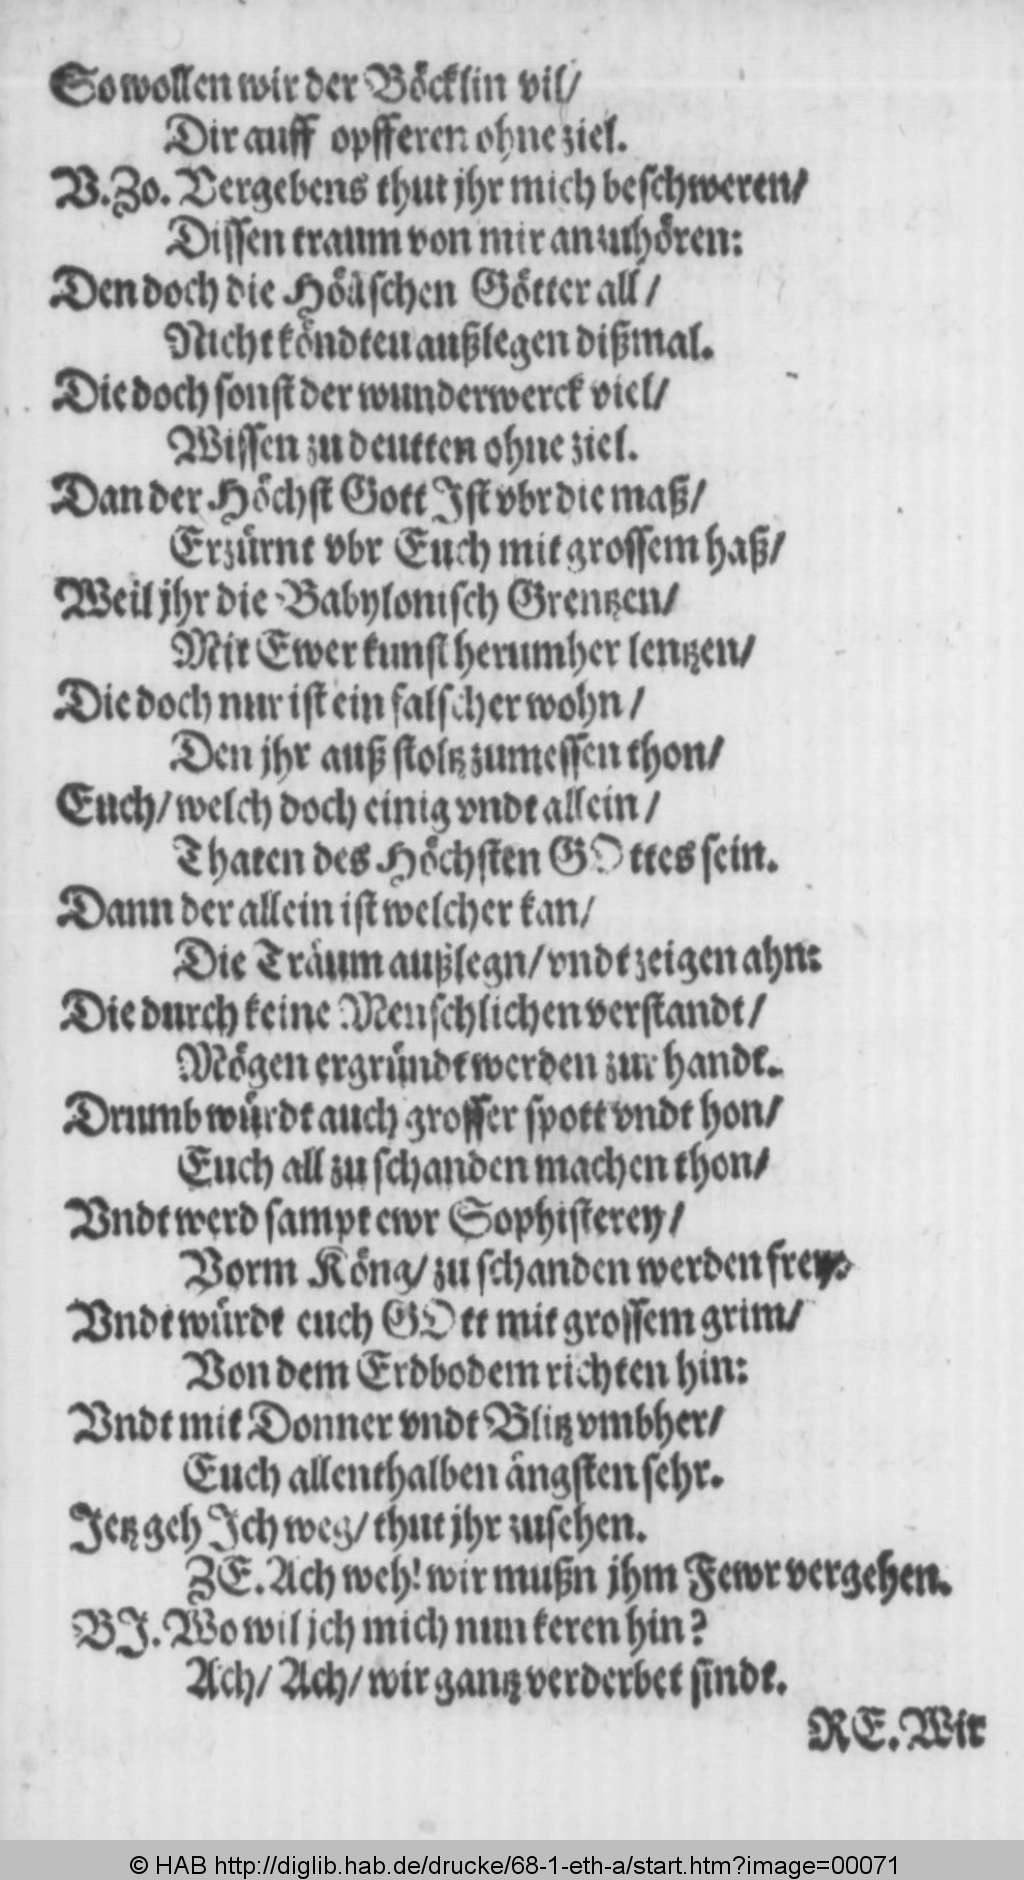 So wollen wir der Böcklin vil/
Dir auff opfferen ohne ziel.
V. Zo. Vergebens thut jhr mich beschweren/
Dissen traum von mir anzuhören:
Den doch die Höllschen Götter all/
Nicht köndten außlegen dißmal.
Die doch sonst der wunderwerck viel/
Wissen zu deutten ohne ziel.
Dan der Höchst Gott Ist vbr die maß/
Erzürnt vbr Euch mit grossem haß/
Weil jhr die Babylonisch Grentzen/
Mit Ewer kunst herumher lentzen/
Die doch nur ist ein falscher wohn/
Den jhr auß stoltz zumessen thon/
Euch/ welch doch einig vndt allein/
Thaten des Höchsten GOttes sein.
Dann der allein ist welcher kan/
Die Träum außlegn/ vndt zeigen ahn:
Die durch keine Menschlichen verstandt/
Mögen ergründt werden zur handt.
Drumb würdt auch grosser spott vndt hon/
Euch all zu schanden machen thon/
Vndt werd sampt ewr Sophisterey/
Vorm Köng/ zu schanden werden frey.
Vndt würdt euch GOtt mit grossem grim/
Von dem Erdbodem richten hin:
Vndt mit Donner vndt Blitz vmbher/
Euch allenthalben ängsten sehr.
Jetz geh Ich weg/ thut jhr zusehen.
ZE. Ach weh! wir mußn jhm Fewr vergehen.
BI. Wo wil jch mich nun keren hin?
Ach/ Ach/ wir gantz verderbet sindt.
RE. Wir
© HAB http://diglib.hab.de/drucke/68-1-eth-a/start.htm?image=00071